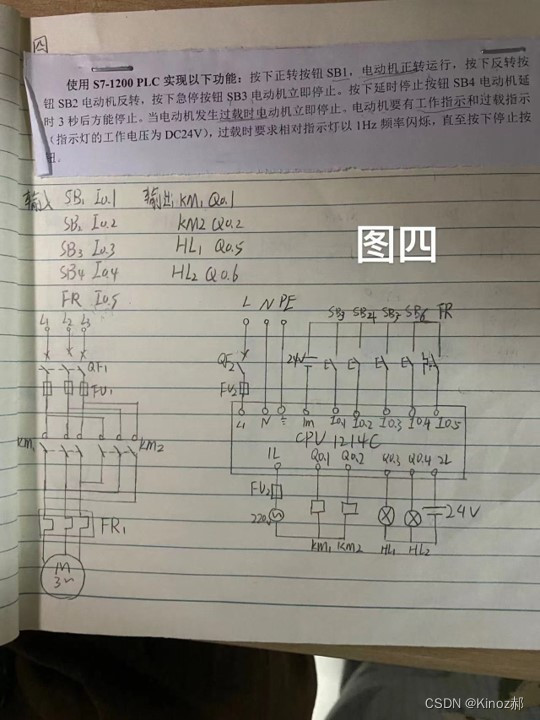 四
使用 S7-1200 PLC 实现以下功能：按下正转按钮 SB1，电动机正转运行，按下反转按
钮 SB2 电动机反转，按下急停按钮 SB3 电动机立即停止。按下延时停止按钮 SB4 电动机延
时 3 秒后方能停止。当电动机发生过载时电动机立即停止。电动机要有工作指示和过载指示
（指示灯的工作电压为 DC24V），过载时要求相对指示灯以 1Hz 频率闪烁，直至按下停止按
钮。
输入 SB1 I0.1 输出 KM1 Q0.1
SB2 I0.2 KM2 Q0.2
SB3 I0.3 HL1 Q0.5
SB4 I0.4 HL2 Q0.6
FR I0.5
图四
L1 L2 L3
QF1
FU1
KM1 KM2
FR1
M
3~
L N PE
QF2
FU2
24V
FR
L1 N 1m I0.1 I0.2 I0.3 I0.4 I0.5
CPU 1214C
1L Q0.1 Q0.2 Q0.3 Q0.4 2L
FU2
220
24V
KM1 KM2 HL1 HL2
CSDN @Kinoz郝